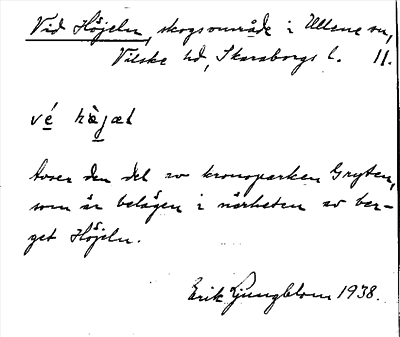 Vid Höjeln, skogsområde i Ullene sn,
Vilske hd, Skaraborgs l. 11.
vé hàjæt
Avser den del av kronoparken Gryten,
som är belägen i närheten av ber-
get Höjeln.
Erik Ljungblom 1938.